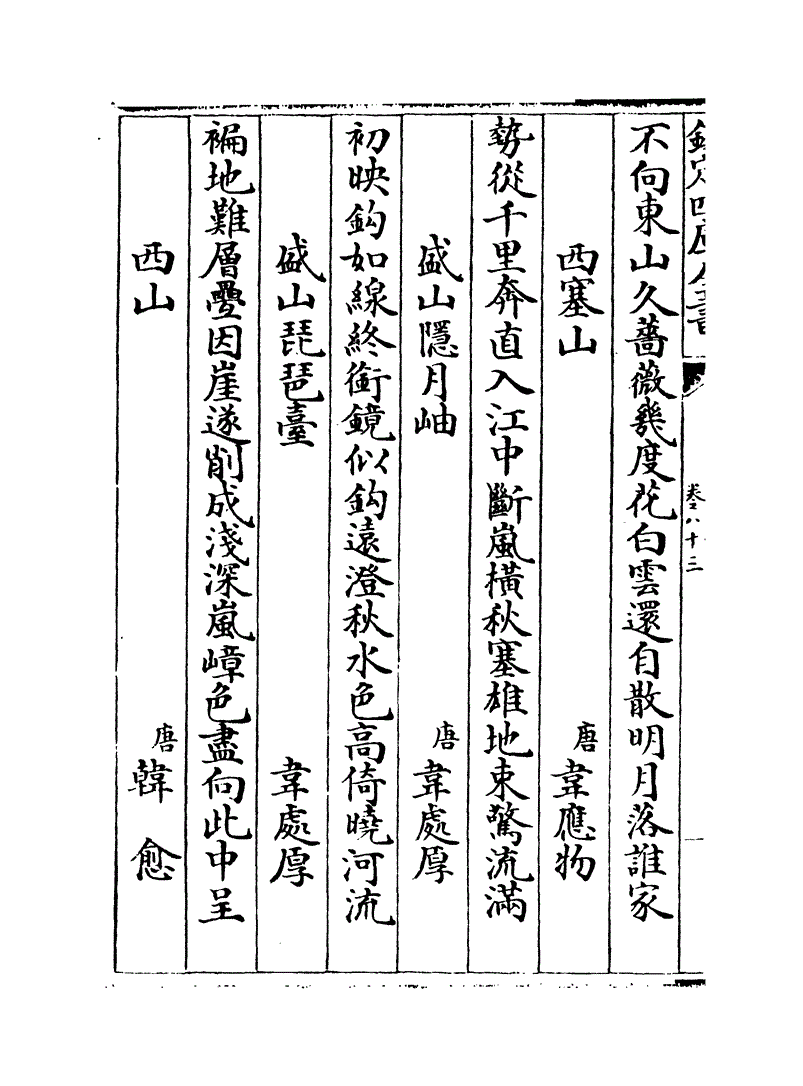 欽定四庫全書
卷二百八十三
不向東山久薔薇幾度花白雲還自散明月落誰家
西塞山 唐 韋應物
勢從千里奔直入江中斷嵐橫秋塞雄地束驚流滿
盛山隱月岫 唐 韋處厚
初映鈎如線終銜鏡似鈎遠澄秋水色高倚曉河流
盛山琵琶臺 韋處厚
褊地難層疊因崖遂削成淺深嵐嶂色盡向此中呈
西山 唐 韓愈